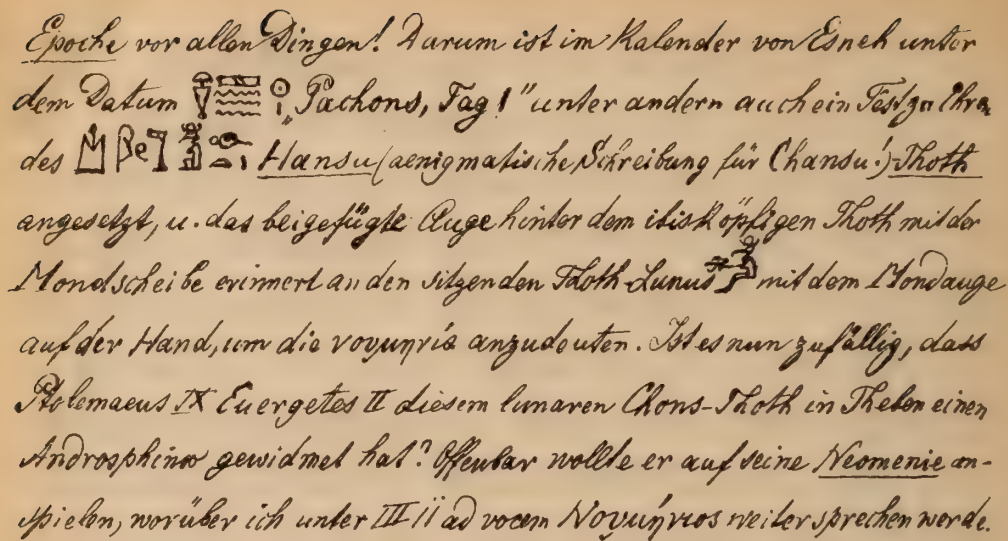 Epoche vor allen Dingen! Darum ist im Kalender von Esneh unter
dem Datum „Pachons, Tag 1" unter andern auch ein Fest zu Ehren
des Hansu (aenigmatische Schreibung für Chansu!) Thoth
angesetzt, u. das beigefügte Auge hinter dem ibisköpfigen Thoth mit der
Mondscheibe erinnert an den sitzenden Thoth-Lunus mit dem Mondauge
auf der Hand, um die νουμηνία anzudeuten. Ist es nun zufällig, dass
Ptolemaeus IX Euergetes II diesem lunaren Chons-Thoth in Theben einen
Androsphinx gewidmet hat? Offenbar wollte er auf seine Neomenie an-
spielen, worüber ich unter III ii ad vocem Νουμήνιος weiter sprechen werde.